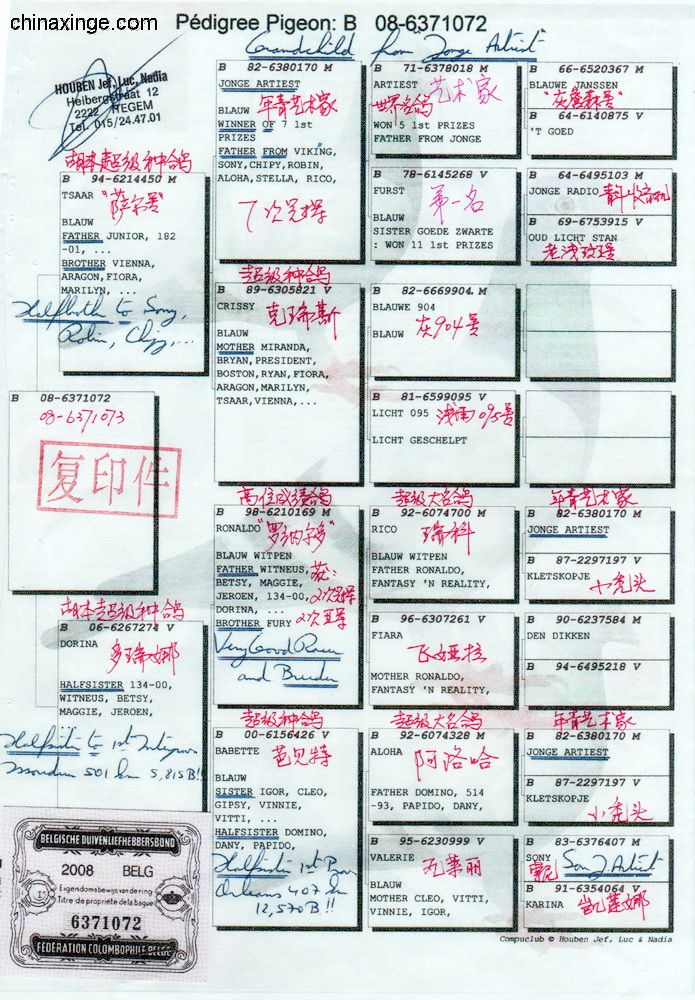 chinaxinge.com
Pédigree Pigeon: B 08-6371072
Grandchild from "Jonge Artiest"
HOUBEN Jef, Luc, Nadia
Heibergstraat 12
2222 ITEGEM
Tel. 015/24.47.01
胡本超级种鸽
B 94-6214450 M
TSAAR "萨尔号"
BLAUW
FATHER JUNIOR, 182
-01, ...
BROTHER VIENNA,
ARAGON,FIORA,
MARILYN, ...
Halfbroth to Sony,
Robin, Chipy,...
B 08-6371072
08-6371073
复印件
胡本超级种鸽
B 06-6267274 V
DORINA 多瑞娜
HALFSISTER 134-00,
WITNEUS, BETSY,
MAGGIE, JEROEN,
Halfsister to 1st
501 km 5,815 B!!
BELGISCHE DUIVENLIEFHEBBERSBOND
2008 BELG
Eigendomsbewijs van de ring
Titre de propriété de la bague
6371072
FÉDÉRATION COLOMBOPHILE BELGE
B 82-6380170 M
JONGE ARTIEST
BLAUW 年青艺术家
WINNER OF 7 1st
PRIZES
FATHER FROM VIKING,
SONY,CHIPY,ROBIN,
ALOHA,STELLA, RICO,
7次冠军
超级种鸽
B 89-6305821 V
CRISSY 克瑞斯
BLAUW
MOTHER MIRANDA,
BRYAN,PRESIDENT,
BOSTON,RYAN,FIORA,
ARAGON,MARILYN,
TSAAR,VIENNA,...
高位成绩鸽
B 98-6210169 M
RONALDO "罗纳尔多"
BLAUW WITPEN
FATHER WITNEUS, 获:
BETSY, MAGGIE,
JEROEN, 134-00, 2次冠军
DORINA, ...
BROTHER FURY 2次亚军
Very Good Racer
and Breeder
超级种鸽
B 00-6156426 V
BABETTE 芭贝特
BLAUW
SISTER IGOR, CLEO,
GIPSY, VINNIE,
VITTI, ...
HALFSISTER DOMINO,
DANY, PAPIDO,
Halfsister 1st Prov
Orleans 407 km
12,570 B!!
B 71-6378018 M
ARTIEST 艺术家
世界名鸽
WON 5 1st PRIZES
FATHER FROM JONGE
B 78-6145268 V
FURST 第一名
BLAUW
SISTER GOEDE ZWARTE
: WON 11 1st PRIZES
B 82-6669904. M
BLAUWE 904
BLAUW 灰904号
B 81-6599095 V
LICHT 095 浅雨095号
LICHT GESCHELPT
超级大名鸽
B 92-6074700 M
RICO 瑞科
BLAUW WITPEN
FATHER RONALDO,
FANTASY 'N REALITY,
B 96-6307261 V
FIARA 飞娅拉
MOTHER RONALDO,
FANTASY 'N REALITY,
超级大名鸽
B 92-6074328 M
ALOHA 阿洛哈
FATHER DOMINO, 514
-93, PAPIDO, DANY,
B 95-6230999 V
VALERIE 瓦莱丽
BLAUW
MOTHER CLEO, VITTI,
VINNIE, IGOR,
B 66-6520367 M
BLAUWE JANSSEN
"灰詹森号"
B 64-6140875 V
'T GOED
B 64-6495103 M
JONGE RADIO
B 69-6753915 V
OUD LICHT STAN
年青艺术家
B 82-6380170 M
JONGE ARTIEST
B 87-2297197 V
KLETSKOPJE
小秃头
B 90-6237584 M
DEN DIKKEN
B 94-6495218 V
年青艺术家
B 82-6380170 M
JONGE ARTIEST
B 87-2297197 V
KLETSKOPJE
小秃头
B 83-6376407 M
SONY Son J Artiest
索尼
B 91-6354064 V
KARINA 凯莲娜
Compuclub © Houben Jef, Luc & Nadia